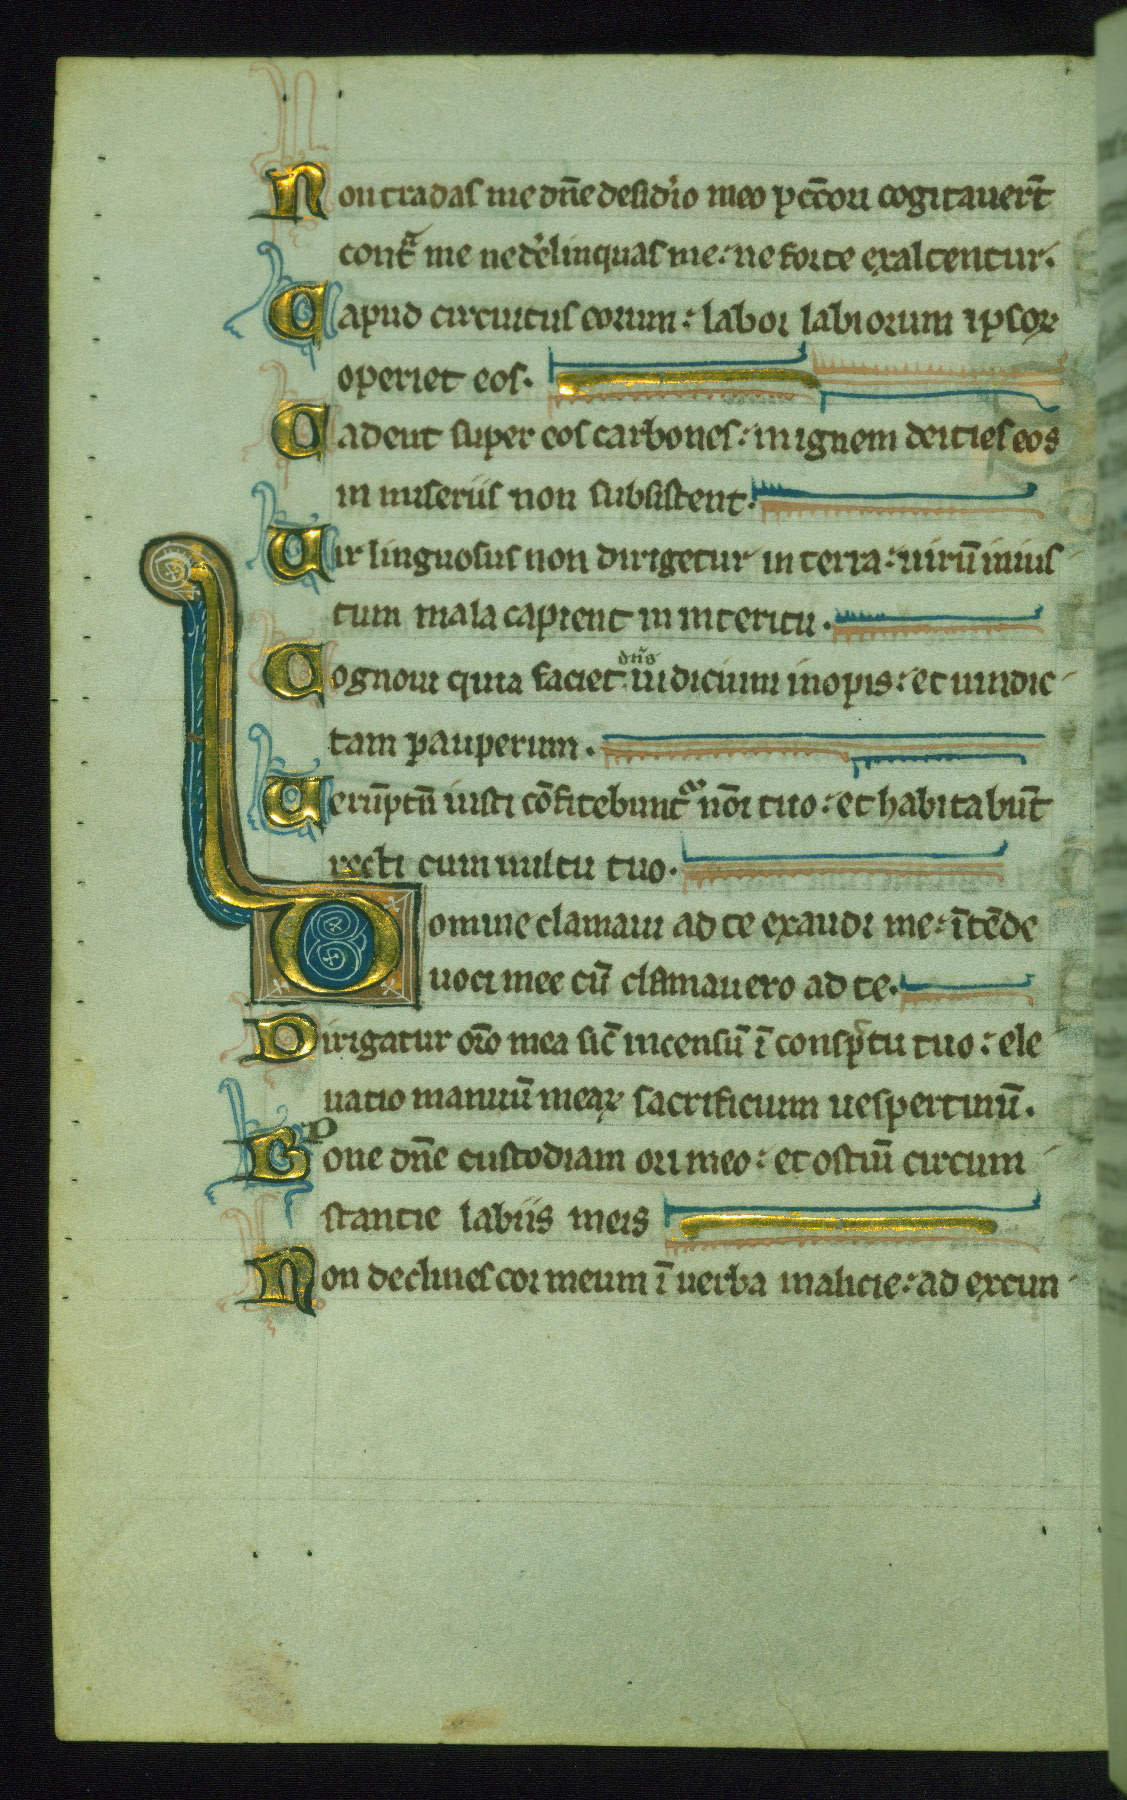 Non tradas me dn̄e desid'io meo p̱cc̄ori cogitauer̄t
cont̃ᵃ me ne d'elinquas me: ne forte exaltentur.
Capud circuitus eorum: labor labiorum ipsoꝝ
operiet eos.
Cadent super eos carbones: in ignem deicies eos
in miseriis non subsistent.
Uir linguosus non dirigetur in terra: uirū inius
tum mala capient in interitu.
dn̄s
Cognoui quia faciet iudicium inopis: et uindic
tam pauperum.
Uerūptū iusti cōfitebunt᷑ nōi tuo: et habitabūt
recti cum uultu tuo.
Domine clamaui ad te exaudi me: ītēde
uoci mee cū clamauero ad te.
Dirigatur or̄o mea sic̄ incensū ī consp̄ctu tuo: ele
uatio manuū meaꝝ sacrificium uespertinū.
p
one dn̄e custodiam ori meo: et ostiū circum
stantie labiis meis
Non declines cor meum ī uerba malicie: ad excun